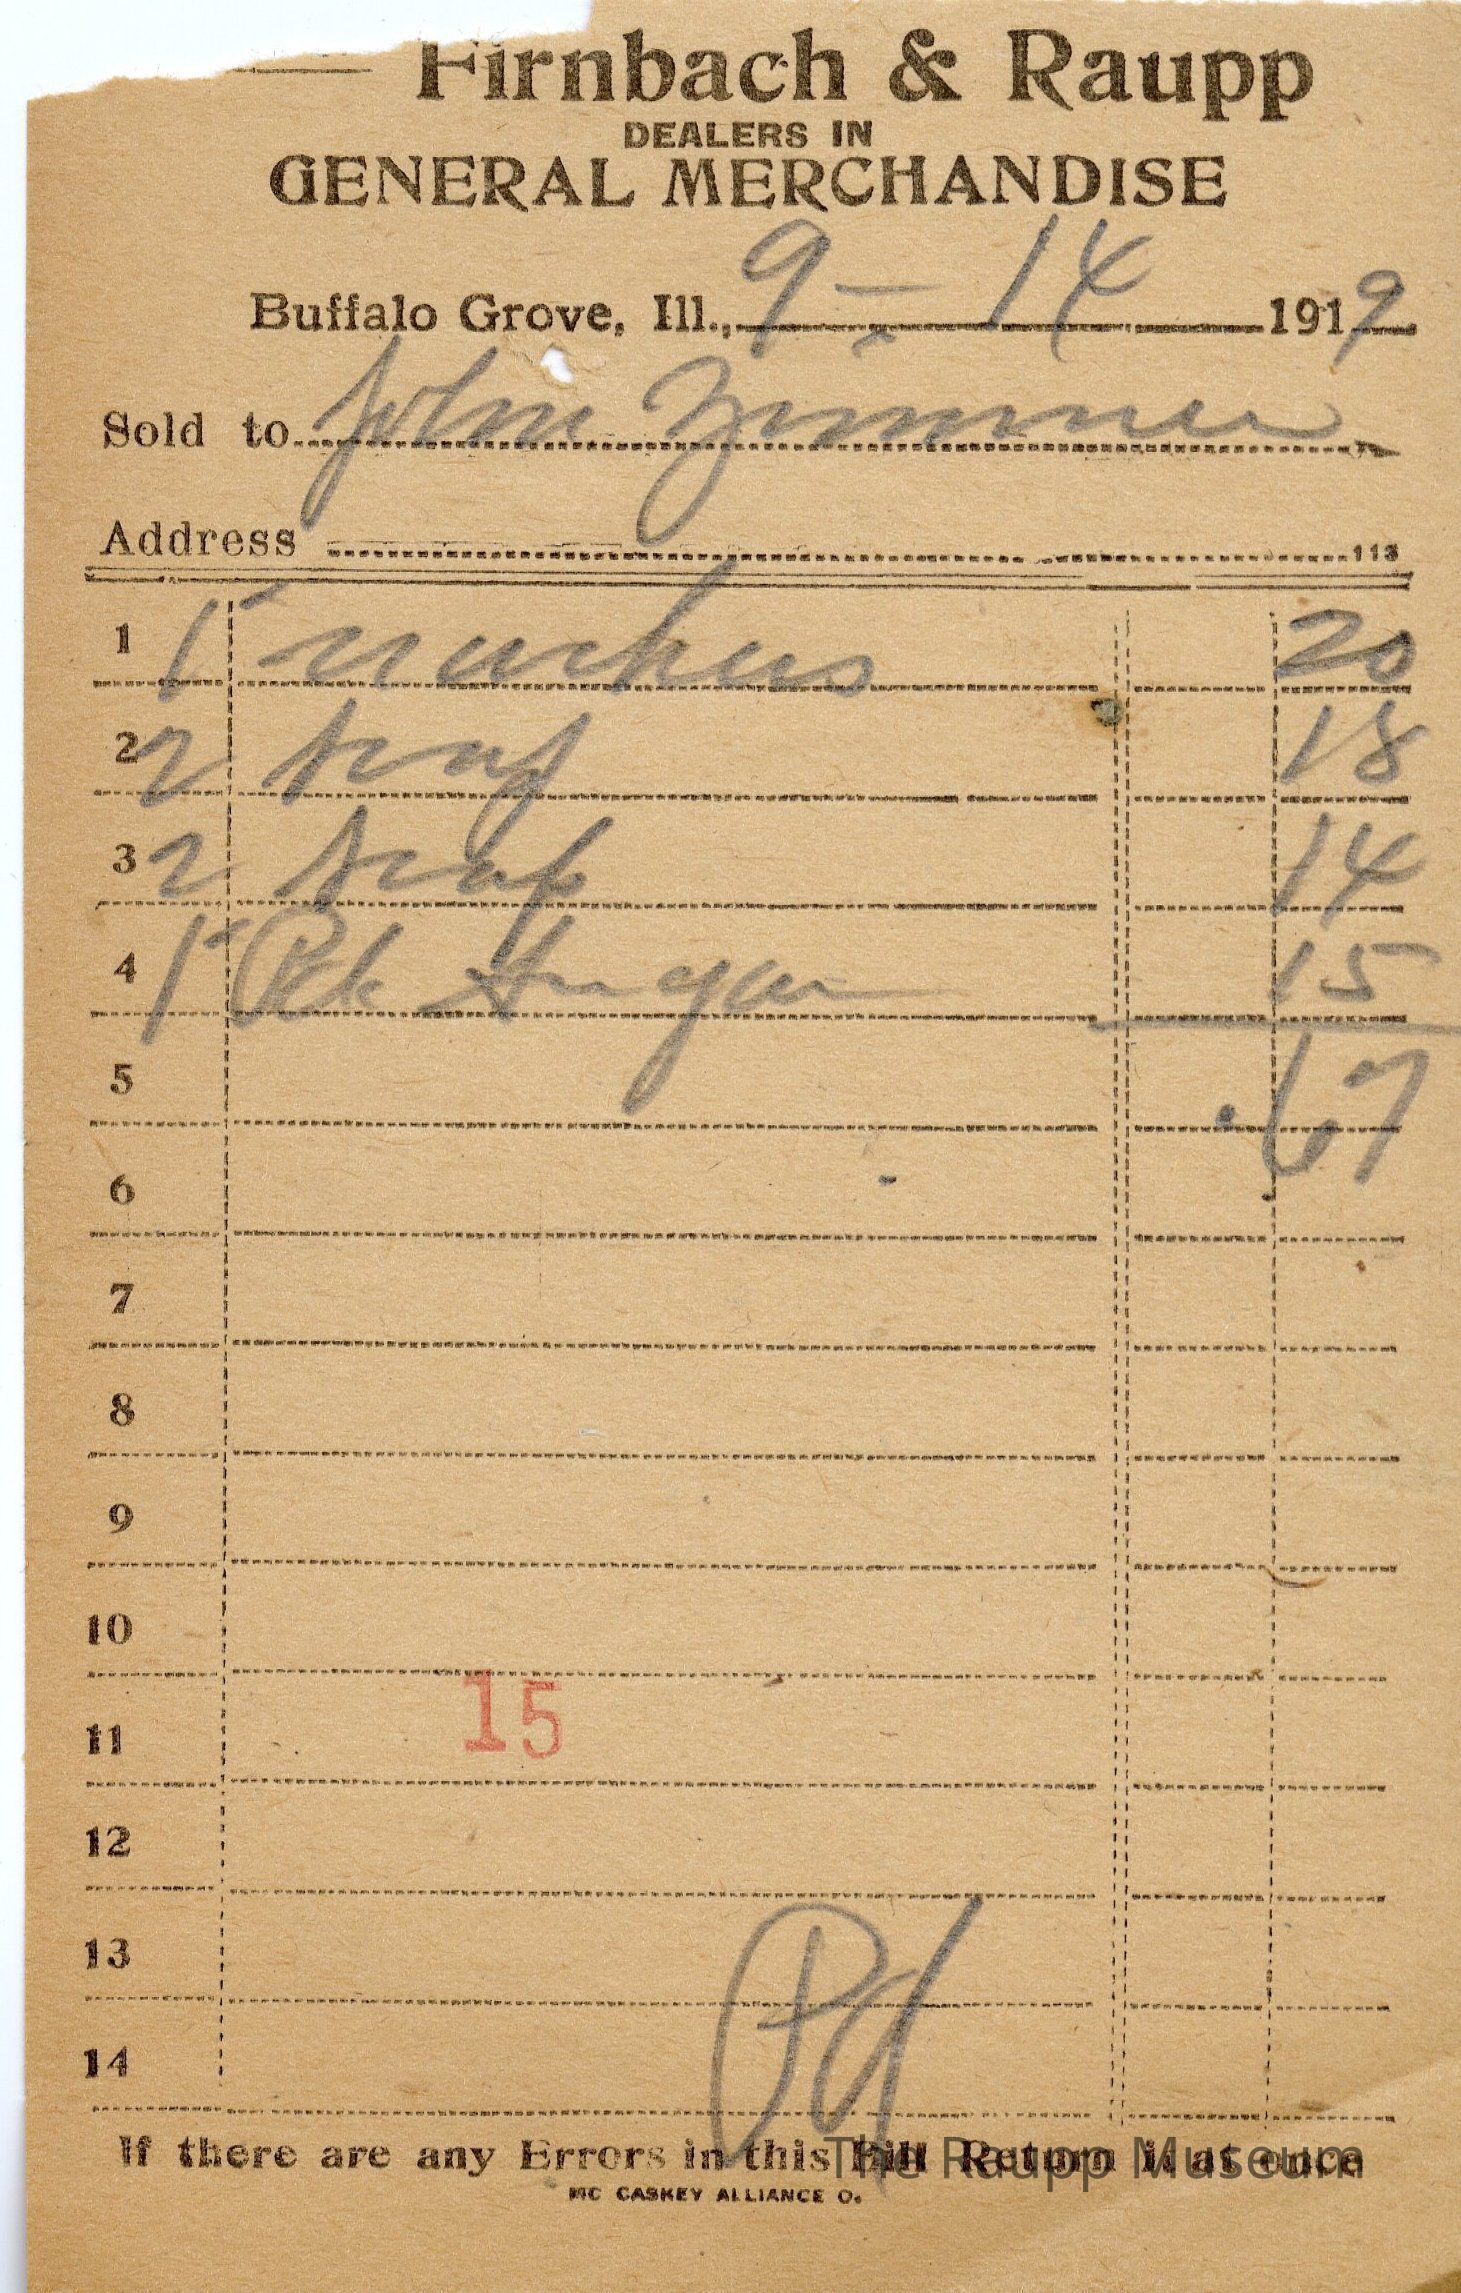 Firnbach & Raupp
DEALERS IN
GENERAL MERCHANDISE
Buffalo Grove, Ill., 9 - 14 1919
Sold to John Zimmer
Address 113
1 1 20
2 2 18
3 2 14
4 1 Pck Sugar 15
5 .67
6
7
8
9
10
11 15
12
13
14 Pd
If there are any Errors in this Bill Return it at once
The Raupp Museum
MC CASKEY ALLIANCE O.